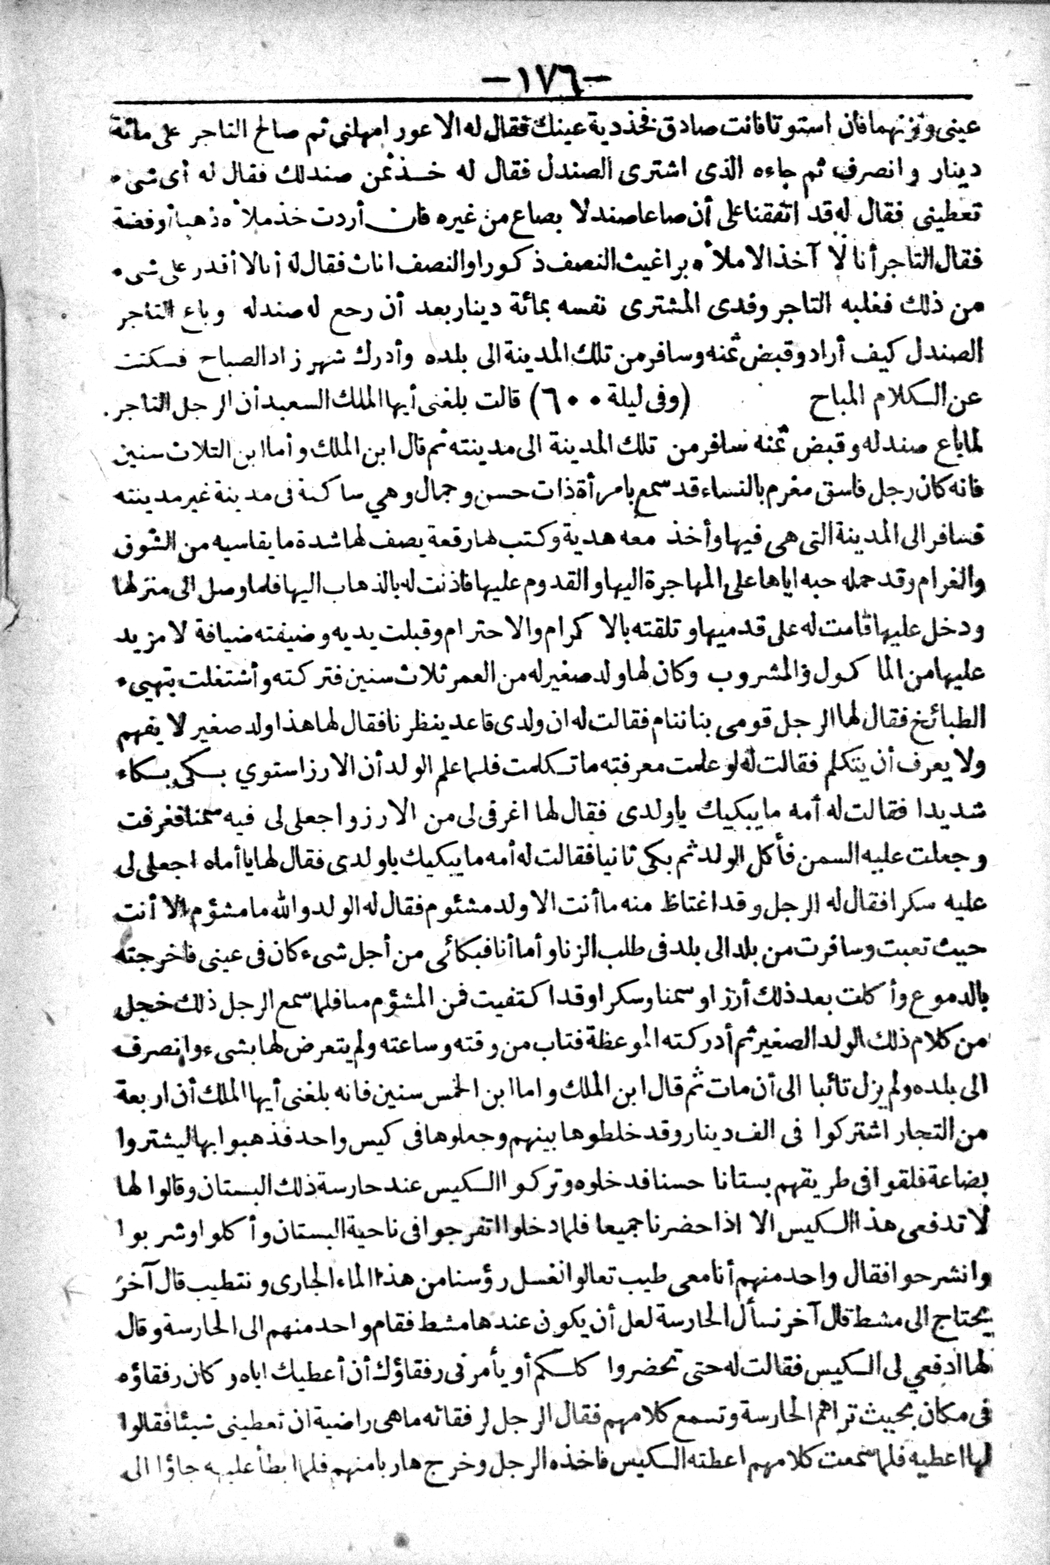 -١٧٦-
عينى وتزنهما فان استوتا فانت صادق فخذ دية عينك فقال له الاعور امهلنى ثم صالح التاجر على مائة
دينار وانصرف ثم جاءه الذى اشترى الصندل فقال له خذ ثمن صندلك فقال له أى شىء
تعطينى فقال له قد اتفقنا على أن صاعا صندلا بصاع من غيره فان أردت خذ ملأه ذهبا أو فضة
فقال التاجر أنا لا آخذ الا ملأه براغيث النصف ذكورا والنصف اناث فقال له أنا لا أقدر على شىء
من ذلك فغلبه التاجر وفدى المشترى نفسه بمائة دينار بعد أن رجع له صندله وباع التاجر
الصندل كيف أراد وقبض ثمنه وسافر من تلك المدينة الى بلده وأدرك شهر زاد الصباح فسكتت
عن الكلام المباح (وفى ليلة ٦٠٠) قالت بلغنى أيها الملك السعيد أن الرجل التاجر
لما باع صندله وقبض ثمنه سافر من تلك المدينة الى مدينته ثم قال ابن الملك وأما ابن الثلاث سنين
فانه كان رجل فاسق مغرم بالنساء قد سمع بامرأة ذات حسن وجمال وهي ساكنة فى مدينة غير مدينته
فسافر الى المدينة التى هى فيها وأخذ معه هدية وكتب لها رقعة يصف لها شدة ما يقاسيه من الشوق
والغرام وقد حمله حبه اياها على المهاجرة اليها والقدوم عليها فاذنت له بالذهاب اليها فلما وصل الى منزلها
ودخل عليها قامت له على قدميها وتلقته بالاكرام والاحترام وقبلت يديه وضيفته ضيافة لا مزيد
عليها من المأكول والمشروب وكان لها ولد صغير له من العمر ثلاث سنين فتركته وأشتغلت بتهيىء
الطبائخ فقال لها الرجل قومى بنا ننام فقالت له ان ولدى قاعد ينظرنا فقال لها هذا ولد صغير لا يفهم
ولا يعرف أن يتكلم فقالت له لو علمت معرفته ما تكلمت فلما علم الولد أن الارز استوي بكى بكاء
شديدا فقالت له أمه ما يبكيك يا ولدى فقال لها اغرفى لى من الارز واجعلى لى فيه سمنا فغرفت
وجعلت عليه السمن فأكل الولد ثم بكى ثانيا فقالت له أمه ما يبكيك يا ولدى فقال لها يا أماه اجعلى لى
عليه سكرا فقال له الرجل وقد اغتاظ منه ما أنت الا ولد مشئوم فقال له الولد والله ما مشؤم الا أنت
حيث تعبت وسافرت من بلد الى بلد فى طلب الزنا وأما أنا فبكائى من أجل شىء كان فى عينى فاخرجته
بالدموع وأكلت بعد ذلك أرزا وسمنا وسكرا وقد اكتفيت فمن المشؤم منا فلما سمع الرجل ذلك خجل
من كلام ذلك الولد الصغير ثم أدركته الموعظة فتاب من وقته وساعته ولم يتعرض لها بشىء وانصرف
الى بلده ولم يزل تائبا الى أن مات ثم قال ابن الملك واما ابن الخمس سنين فانه بلغنى أيها الملك أن اربعة
من التجار اشتركوا فى الف دينار وقد خلطوها بينهم وجعلوها فى كيس واحد فذهبوا بها ليشتروا
بضاعة فلقوا فى طريقهم بستانا حسنا فدخلوه وتركوا الكيس عند حارسة ذلك البستان وقالوا لها
لا تدفعى هذا الكيس الا اذا حضرنا جميعا فلما دخلوا اتفرجوا فى ناحية البستان وأكلوا وشربوا
وانشرحوا فقال واحد منهم أنا معى طيب تعالوا نغسل رؤسنا من هذا الماء الجارى ونتطيب قال آخر
يحتاج الى مشط قال آخر نسأل الحارسة لعل أن يكون عندها مشط فقام واحد منهم الى الحارسة وقال
لها ادفعي لى الكيس فقالت له حتى تحضروا كلكم أو يأمرنى رفقاؤك أن أعطيك اياه وكان رفقاؤه
فى مكان بحيث تراهم الحارسة وتسمع كلامهم فقال الرجل لرفقائه ماهى راضية ان تعطينى شيئا فقالوا
لها اعطيه فلما سمعت كلامهم اعطته الكيس فاخذه الرجل وخرج هاربا منهم فلما ابطأ عليهم جاؤا الى